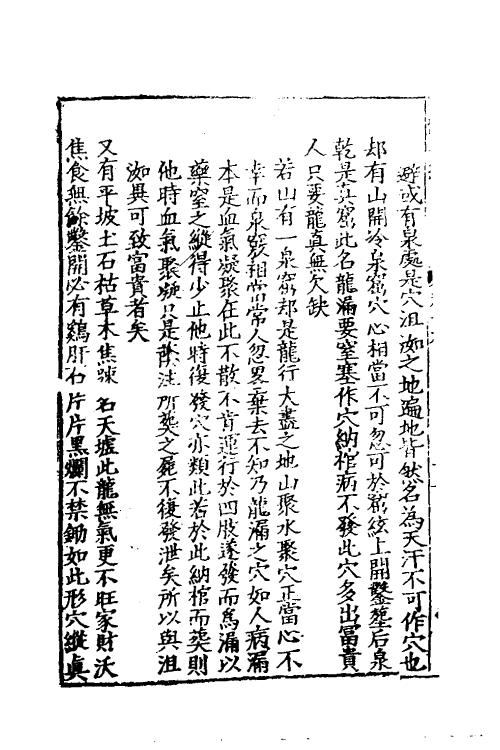 避或有泉處是穴沮洳之地遍地皆然名為天汗不可作穴也
却有山開冷泉窟穴心相當不可忽可於窟絃上開鑿塟后泉
乾是真窟此名龍漏要窒塞作穴納棺病不發此穴多出富貴
人只要龍真無欠缺
若山有一泉窟却是龍行大盡之地山聚水聚穴正當心不
幸而泉竅相當常人忽畧棄去不知乃龍漏之穴如人病漏
本是血氣凝聚在此不散不肯運行於四肢遂發而為漏以
藥窒之縱得少止他時復發穴亦類此若於此納棺而葬則
他時血氣聚凝只是蔭注所葬之屍不復發泄矣所以與沮
洳異可致富貴者矣
又有平坡土石枯草木焦踈名天墟此龍無氣更不旺家財沃
焦食無餘鑿開必有鷄肝石片片黑爛不禁鋤如此形穴縱真